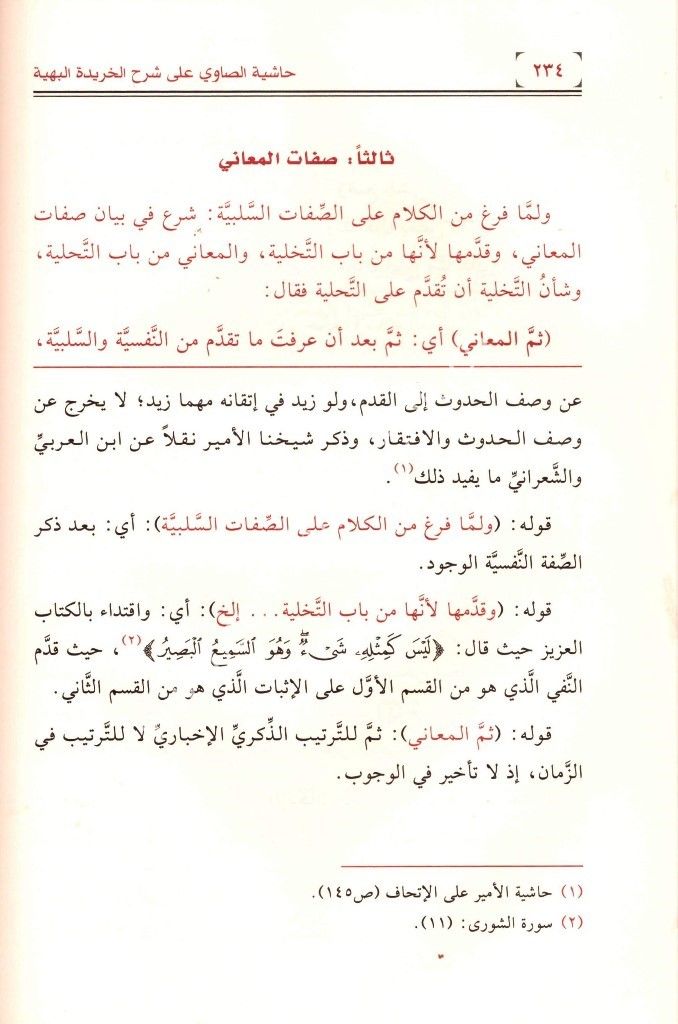 ٢٣٤
حاشية الصاوي على شرح الخريدة البهية
ثالثاً: صفات المعاني
ولمَّا فرغ من الكلام على الصِّفات السَّلبيَّة: شرع في بيان صفات
المعاني، وقدَّمها لأنَّها من باب التَّخلية، والمعاني من باب التَّحلية،
وشأنُ التَّخلية أن تُقدَّم على التَّحلية فقال:
(ثمَّ المعاني) أي: ثمَّ بعد أن عرفتَ ما تقدَّم من النَّفسيَّة والسَّلبيَّة،
عن وصف الحدوث إلى القدم،ولو زيد في إتقانه مهما زيد؛ لا يخرج عن
وصف الحدوث والافتقار، وذكر شيخنا الأمير نقلاً عن ابن العربيِّ
والشَّعرانيِّ ما يفيد ذلك(١).
قوله: (ولمَّا فرغ من الكلام على الصِّفات السَّلبيَّة): أي: بعد ذكر
الصِّفة النَّفسيَّة الوجود.
قوله: (وقدَّمها لأنَّها من باب التَّخلية... إلخ): أي: واقتداء بالكتاب
العزيز حيث قال: ﴿لَيْسَ كَمِثْلِهِۦ شَىْءٌۖ وَهُوَ ٱلسَّمِيعُ ٱلْبَصِيرُ﴾(٢)، حيث قدَّم
النَّفي الَّذي هو من القسم الأوَّل على الإثبات الَّذي هو من القسم الثَّاني.
قوله: (ثمَّ المعاني): ثمَّ للتَّرتيب الذِّكريِّ الإخباريِّ لا للتَّرتيب في
الزَّمان، إذ لا تأخير في الوجوب.
(١) حاشية الأمير على الإتحاف (ص١٤٥).
(٢) سورة الشورى: (١١).